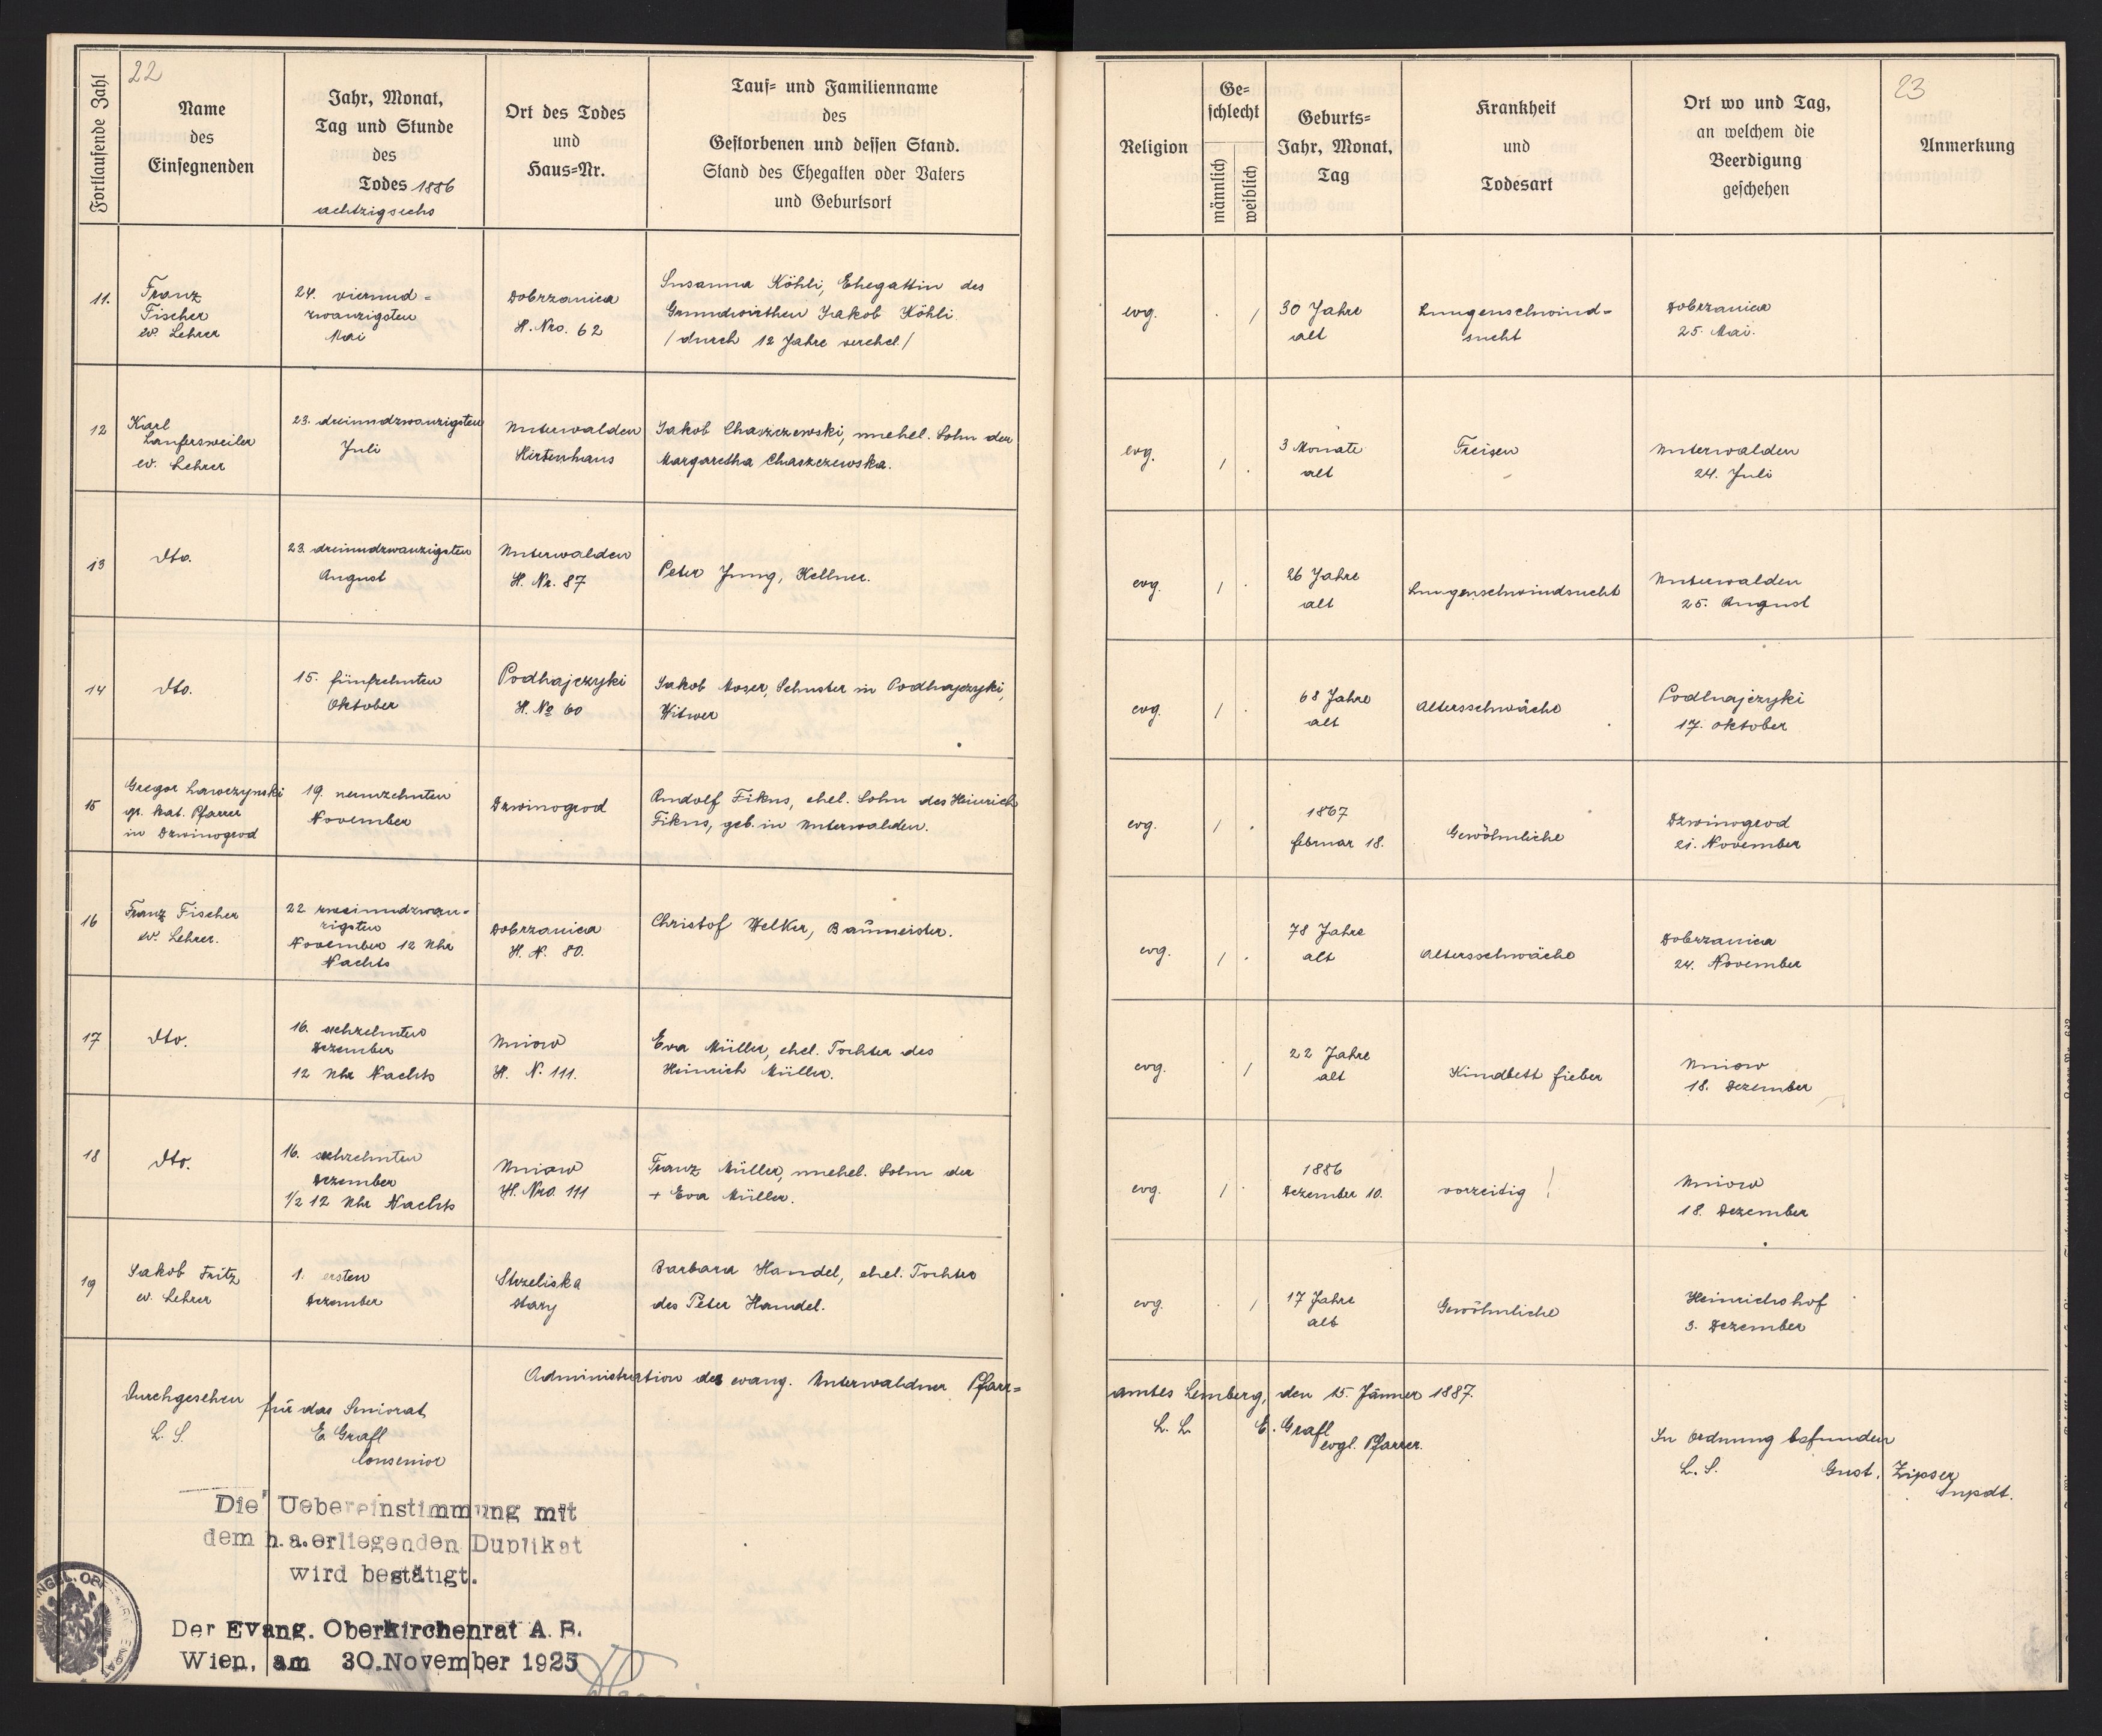 22
Fortlaufende Zahl
Name
des
Einsegnenden
Jahr, Monat,
Tag und Stunde
des
Todes 1886
achtzigsechs
Ort des Todes
und
Haus=Nr.
Tauf= und Familienname
des
Gestorbenen und dessen Stand.
Stand des Ehegatten oder Vaters
und Geburtsort
Religion
Ge=
schlecht
männlich
weiblich
Geburts=
Jahr, Monat,
Tag
Krankheit
und
Todesart
Ort wo und Tag,
an welchem die
Beerdigung
geschehen
23
Anmerkung
11.
Franz
Fischer
ev. Lehrer
24. vierund=
zwanzigsten
Mai
Dobrzanica
H. Nro. 62
Susanna Köhli, Ehegattin des
Grundwirthen Jakob Köhli
/durch 12 Jahre verehel./
evg.
. /
30 Jahre
alt
Lungenschwind=
sucht
Dobrzanica
25. Mai.
12
Karl
Laufersweiler
ev. Lehrer
23. dreiundzwanzigsten
Juli
Unterwalden
Hirtenhaus
Jakob Chaszczewski, unehel. Sohn der
Margaretha Chaszczewska.
evg.
/ .
3 Monate
alt
Freisen
Unterwalden
24. Juli
13
dto.
23. dreiundzwanzigsten
August
Unterwalden
H. Nr. 87
Peter Jung, Kellner.
evg.
/ .
26 Jahre
alt
Lungenschwindsucht
Unterwalden
25. August
14
dto.
15. fünfzehnten
Oktober
Podhajczyki
H. No 60
Jakob Moser, Schuster in Podhajczyki,
Witwer
evg.
/ .
68 Jahre
alt
Altersschwäche
Podhajczyki
17. Oktober
15
Gregor Lawczynski
gr. kat. Pfarrer
in Dzwinogrod
19. neunzehnten
November
Dzwinogrod
Rudolf Fikus, ehel. Sohn des Heinrich
Fikus, geb. in Unterwalden.
evg.
/ .
1867
februar 18.
Gewöhnliche
Dzwinogrod
21. November
16
Franz Fischer
ev. Lehrer.
22 zweiundzwan=
zigsten
November 12 Uhr
Nachts
Dobrzanica
H. N. 80.
Christof Welker, Baumeister.
evg.
/ .
78 Jahre
alt
Altersschwäche
Dobrzanica
24. November
17
dto.
16. sechzehnten
Dezember
12 Uhr Nachts
Uniow
H. N. 111.
Eva Müller, ehel. Tochter des
Heinrich Müller.
evg.
. /
22 Jahre
alt
Kindbett fieber
Uniow
18. Dezember
18
dto.
16. sechzehnten
Dezember
1/2 12 Uhr Nachts
Uniow
H. Nro. 111
Franz Müller, unehel. Sohn der
+ Eva Müller.
evg.
/ .
1886
Dezember 10.
vorzeitig !
Uniow
18. Dezember
19
Jakob Fritz
ev. Lehrer
1. ersten
Dezember
Strzeliska
stary
Barbara Handel, ehel. Tochter
des Peter Handel.
evg.
. /
17 Jahre
alt
Gewöhnliche
Heinrichshof
3. Dezember
Administration des evang. Unterwaldner Pfarr=
amtes Lemberg, den 15. Jänner 1887.
L. L. E. Grafl
evgl. Pfarrer.
Durchgesehen für das Seniorat
L. S. E. Grafl
Consenior
In Ordnung befunden
L. S. Gust. Zipser
Supdt.
Die Uebereinstimmung mit
dem h.a.erliegenden Duplikat
wird bestätigt.
Der Evang. Oberkirchenrat A.B.
Wien, am 30.November 1925